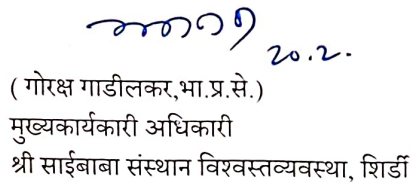 20.2.
( गोरक्ष गाडीलकर,भा.प्र.से.)
मुख्यकार्यकारी अधिकारी
श्री साईबाबा संस्थान विश्वस्तव्यवस्था, शिर्डी